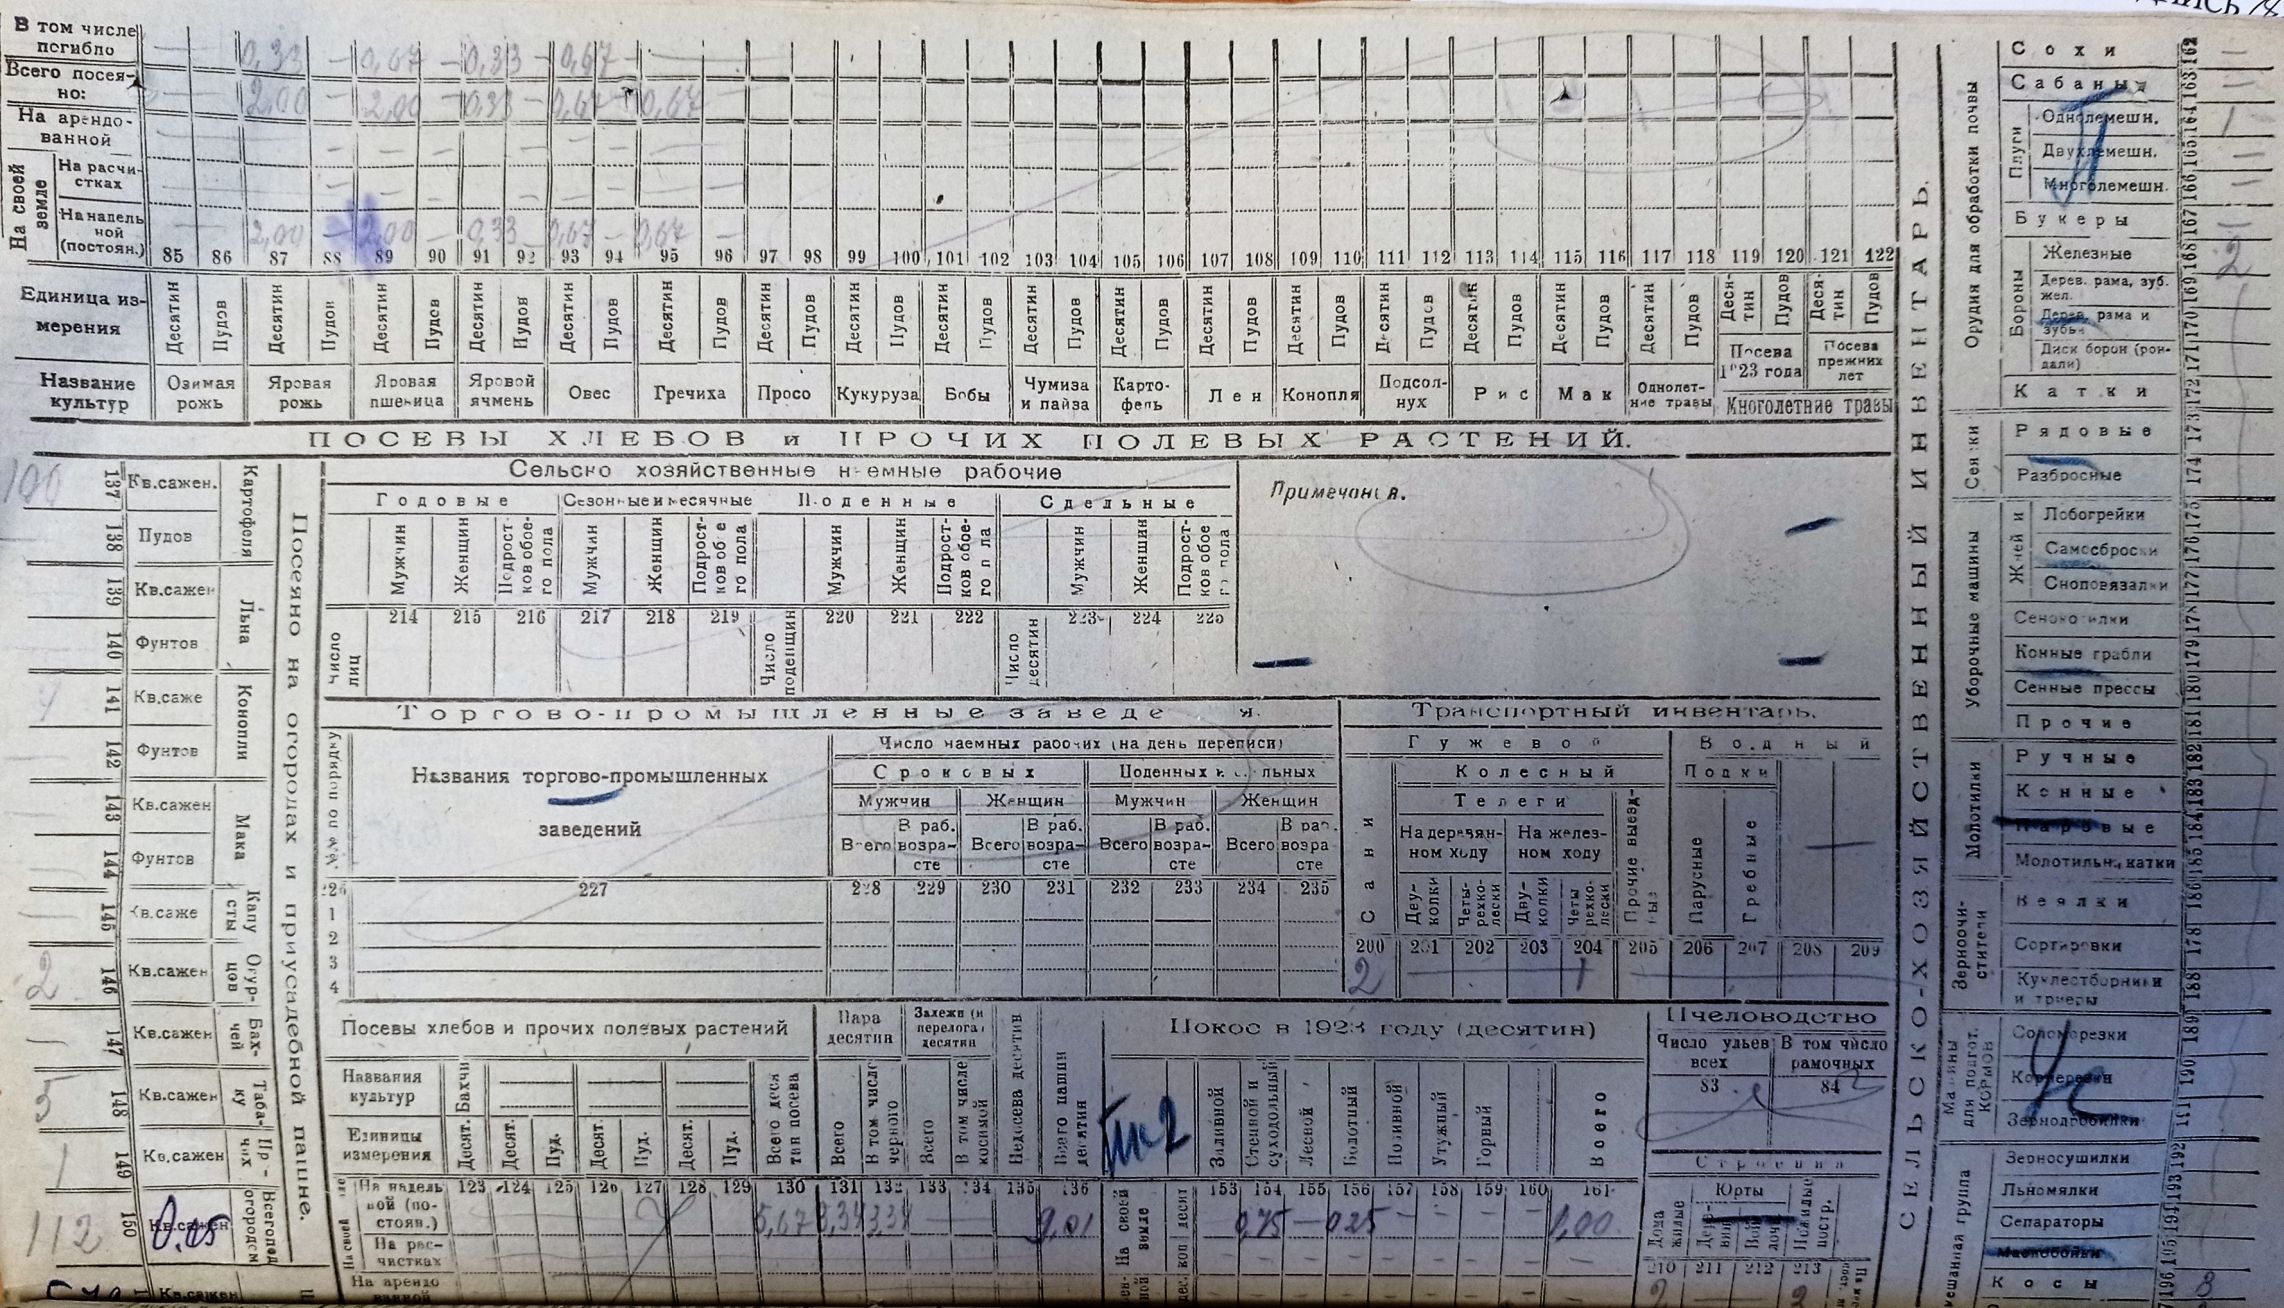 В том числе погибло — 0,33 — 0,67 — 0,33 — 0,67 —
Всего посеяно: — 2,00 — 2,00 — 0,33 — 0,67 — 0,67 —
На арендованной
На своей земле
На расчистках
На надельной (постоян.) — 2,00 — 2,00 — 0,33 — 0,67 — 0,67 —
85 86 87 88 89 90 91 92 93 94 95 96 97 98 99 100 101 102 103 104 105 106 107 108 109 110 111 112 113 114 115 116 117 118 119 120 121 122
Единица измерения
Десятин Пудов Десятин Пудов Десятин Пудов Десятин Пудов Десятин Пудов Десятин Пудов Десятин Пудов Десятин Пудов Десятин Пудов Десятин Пудов Десятин Пудов Десятин Пудов Десятин Пудов Десятин Пудов Десятин Пудов Десятин Пудов Десятин Пудов Десятин Пудов Десятин Пудов
Посева 1923 года Посева прежних лет
Название культур
Озимая рожь Яровая рожь Яровая пшеница Яровой ячмень Овес Гречиха Просо Кукуруза Бобы Чумиза и пайза Картофель Лен Конопля Подсолнух Рис Мак Однолетние травы Многолетние травы
ПОСЕВЫ ХЛЕБОВ и ПРОЧИХ ПОЛЕВЫХ РАСТЕНИЙ.
Посеяно на огородах и приусадебной пашне.
100 137 Кв.сажен. Картофеля
138 Пудов
139 Кв.сажен Льна
140 Фунтов
141 Кв.саже Конопли
142 Фунтов
143 Кв.сажен Мака
144 Фунтов
145 Кв.саже Капусты
2 146 Кв.сажен Огурцов
147 Кв.сажен Бахчей
5 148 Кв.сажен Табаку
1 149 Кв.сажен Прочих
112 150 Кв.сажен 0.05 Всего под огородом
Кв.сажен
Сельско хозяйственные наемные рабочие
Годовые Сезонные и месячные Поденные Сдельные
Мужчин Женщин Подростков обоего пола Мужчин Женщин Подростков обоего пола Мужчин Женщин Подростков обоего пола Мужчин Женщин Подростков обоего пола
Число лиц 214 215 216 217 218 219 Число поденщин 220 221 222 Число десятин 223 224 225
Примечания.
Торгово-промышленные заведения.
№№ по порядку
Названия торгово-промышленных заведений
Число наемных рабочих (на день переписи)
Сроковых Поденных и сдельных
Мужчин Женщин Мужчин Женщин
Всего В раб. возрасте Всего В раб. возрасте Всего В раб. возрасте Всего В раб. возрасте
226 227 228 229 230 231 232 233 234 235
1
2
3
4
Транспортный инвентарь.
Гужевой Водный
Колесный Лодки
Телеги
На деревянном ходу На железном ходу
Сани Двуколки Четырехколески Двуколки Четырехколески Прочие выездные Парусные Гребные
200 201 202 203 204 205 206 207 208 209
2 — 1 —
Посевы хлебов и прочих полевых растений
Пара десятин
Залежи (и перелога) десятин
Недосева десятин
Всего пашни десятин
Названия культур Бахчи
Единицы измерения Десят. Десят. Пуд. Десят. Пуд. Десят. Пуд. Всего десятин посева Всего В том числе черного Всего В том числе косимой
На надельной (постоян.) 123 124 125 126 127 128 129 130 131 132 133 134 135 136
5,67 3,34 3,34 — 9,01
На расчистках
На арендованной
Покос в 1923 году (десятин)
Заливной Степной и суходольный Лесной Болотный Поливной Утужный Горный Всего
153 154 155 156 157 158 159 160 161
На своей земле 0,75 — 0,25 — 1,00
Пчеловодство
Число ульев всех В том число рамочных
83 84
Строения
Дома жилые Юрты Нежилые постр.
210 211 212 213
2 2
СЕЛЬСКО-ХОЗЯЙСТВЕННЫЙ ИНВЕНТАРЬ.
Орудия для обработки почвы
Сохи 162 —
Сабаны 163 —
Плуги
Однолемешн. 164 1
Двухлемешн. 165 —
Многолемешн. 166 —
Букеры 167 —
Бороны
Железные 168 2
Дерев. рама, зуб. жел. 169
Дерев. рама и зубья 170
Диск борон (рондали) 171
Катки 172
Сеялки
Рядовые 173
Разбросные 174
Уборочные машины
Жнеи
Лобогрейки 175
Самосброски 176
Сноповязалки 177
Сенокосилки 178
Конные грабли 179
Сенные прессы 180
Прочие 181
Молотилки
Ручные 182
Конные 183
Паровые 184
Молотильн. катки 185
Зерноочистители
Веялки 186
Сортировки
Куклестборники и триеры 188
Машины для подгот. кормов
Соломорезки 189
Корнерезки 190
Зернодробилки
Смешанная группа
Зерносушилки 192
Льномялки 193
Сепараторы 194
Маслобойки 195
Косы 196 3